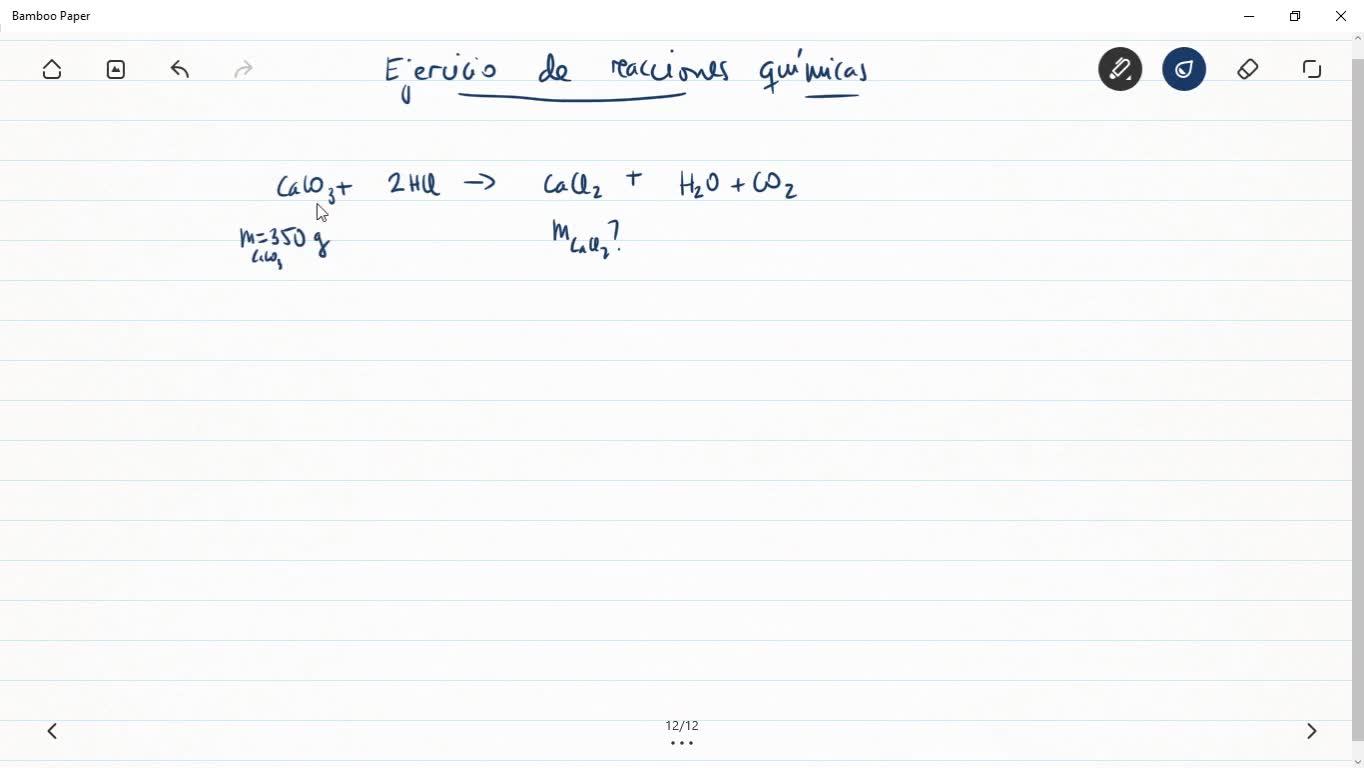 Bamboo Paper
Ejercicio de reacciones químicas
CaCO₃ + 2HCl → CaCl₂ + H₂O + CO₂
m CaCO₃ = 350 g m CaCl₂?
12/12